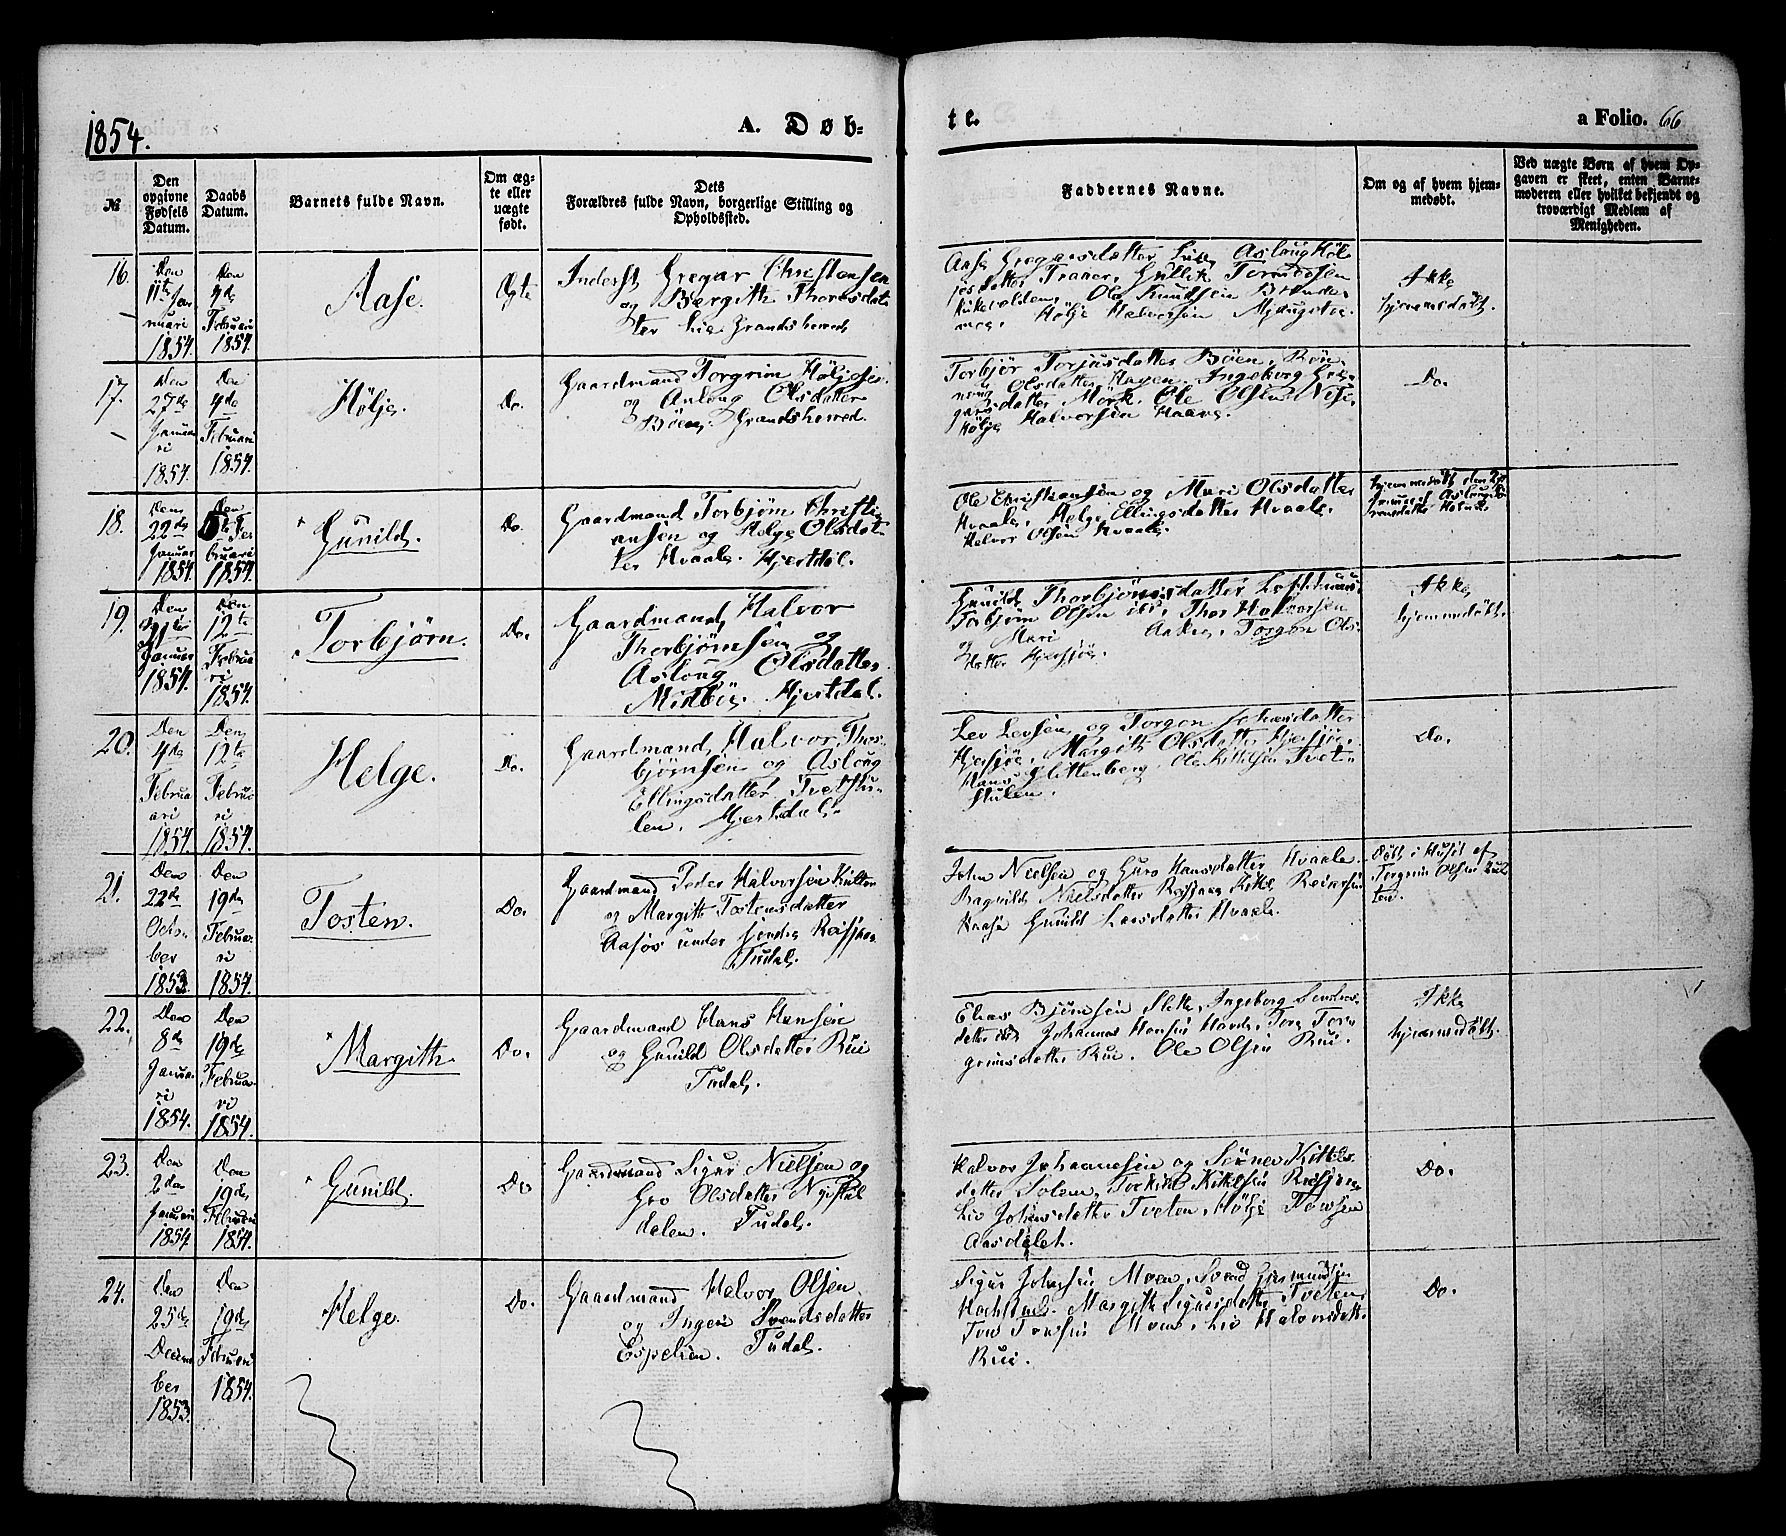 1854.
A. Døb-
te.
a Folio. 66
№
Den
opgivne
Fødsels
Datum.
Daabs
Datum.
Barnets fulde Navn.
Om æg-
te eller
uægte
født.
Dets
Forældres fulde Navn, borgerlige Stilling og
Opholdssted.
Faddernes Navne.
Om og af hvem hjem-
medøbt.
Ved uægte Børn af hvem Op-
gaven er skeet, enten Barne-
moderen eller hvilket bekjendt og
troværdigt Medlem af
Menigheden.
16.
Den
11te Jan
nuari
1854.
Den
4de
Februari
1854.
Aase.
Ægte
Inderst Gregar Christensen
og Bergith Thoresdat
ter Lie Grandsherred
Aase Gregarsdatter Lie, Aslaug Høl
jesdatter Traaer, Gullik
Ole Knudsen
Høljе Halvorsen
Ikke
hjemmedøbt.
17.
Den
27de
Januar
i
1854.
Den
4de
Februari
1854.
Hølje.
Do.
Gaardmand Torgrim Høljesen
og Asloug Olsdatter
Bøen. Grandsherred.
Torbjør Torjusdatter Bøen, Røn
noug Olsdatter Hagen, Ingeborg Gre
garsdatter Mørk. Ole Olsen
Hølje Halvorsen Haave.
Do.
18.
Den
22de
Januar
1854.
Den
5te Fe
bruari
1854.
Gunild.
Do.
Gaardmand Torbjørn Christi
ansen og Helge Olsdat
ter Hvaale. Hjertdal.
Ole Christiansen og Mari Olsdatter
Hvaale, Helge Ellingsdatter Hvaale.
Halvor Olsen Hvaale
hjemmedøbt den 27
Januar af Aslaug
19.
Den
Januar
1854.
Den
12te
Februa
ri
1854.
Torbjørn.
Do.
Gaardmand Halvor
Thorbjørnsen og
Asloug Olsdatter
Midbøe. Hjertdal.
Gunild Thorbjørnsdatter
Torbjørn Olsen ibid, Thor Halvorsen
og Mari Torgon Ols
datter Hjersjøe.
Ikke
hjemmedøbt.
20.
Den
4de
Februa
ari
1854.
Den
12te
Februa
ri
1854.
Helge.
Do.
Gaardmand Halvor Thor
bjørnsen og Aslong
Ellingsdatter Tvetstu
len. Hjertdal.
Lev Levsen og Torgon Johansdatter
Hjersjøe, Margith Olsdatter Hjersjøe.
Hans Glittenberg. Ole Kittilsen Tvet
stulen.
Do.
21.
Den
22de
Octo
ber
1853.
Den
19de
Februa
ri
1854.
Tosten.
Do.
Gaardmand Peder Halvorsen Kulten
og Margith Tostensdatter
Aasos under søndre Reisjaa
Tudal.
John Nielsen og Guro Hansdatter Hvaale.
Ragnild Nielsdatter Reisjaa
Gunild Larsdatter Hvaale.
Døbt i Huset af
Torgrim Olsen Kul
ten.
22.
Den
8de
Januar
ri
1854.
Den
19de
Februar
ri
1854.
Margith.
Do.
Gaardmand Hans Hansen
og Gunild Olsdatter Rui
Tudal.
Elias Bjørnsen Slette, Ingeborg
datter ibid, Johannes Hansen Tone Tor
grimsdatter Rui. Ole Olsen Rui.
Ikke
hjemmedøbt.
23.
Den
2den
Januari
1854
Den
19de
Februari
1854.
Gunild.
Do
Gaardmand Sigur Nielsen og
Gro Olsdatter Nystøl
dalen. Tudal.
Halvor Johannesen og Kittils
datter Solem, Torkild Kittilsen Reisjaa
Liv Johnsdatter Tveten, Hølje Tovsen
Aasdalet.
Do.
24.
Den
25de
Decem
ber
1853.
Den
19de
Februari
1854.
Helge.
Do.
Gaardmand Halvor Olsen
og Ingeri Svendsdatter
Espelien. Tudal.
Sigur Johnsen Moen, Svend Gjermundsen
Margith Sigursdatter Tveten,
Tov Tovsen Moen, Liv Halvorsdatter
Rui.
Do.